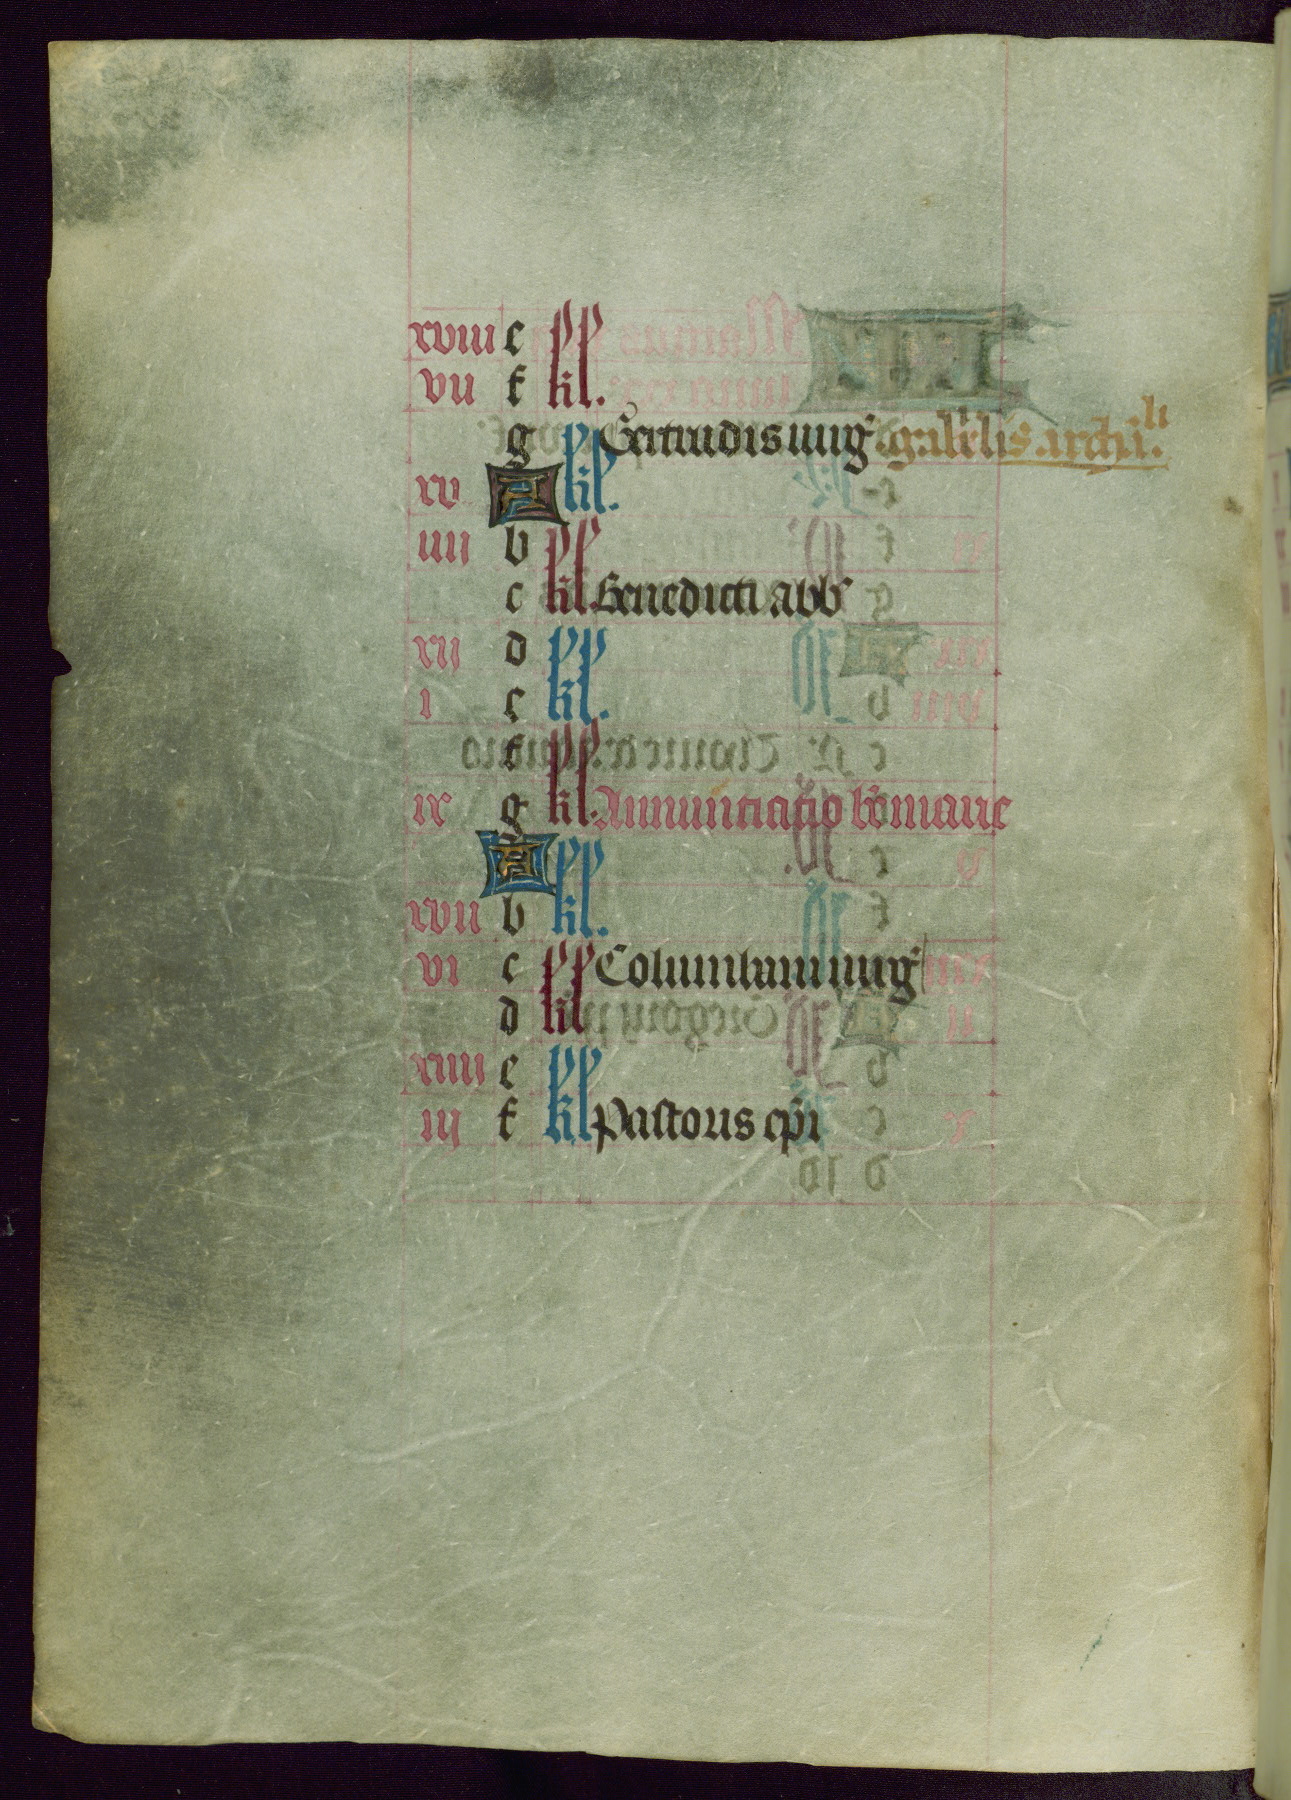 xviii e
vii f kl.
g Gertrudis uirg̃ .gab'rlis. archi.li
xv A kl.
iiii b
c kl. Benedicti abb'
xii d
i e kl.
f
ix g kl. Annunciatio be marie
A
xvii b kl.
vi c Columbani uirg̃
d kl
xiiii e
iii f kl Pastoris ep̃i